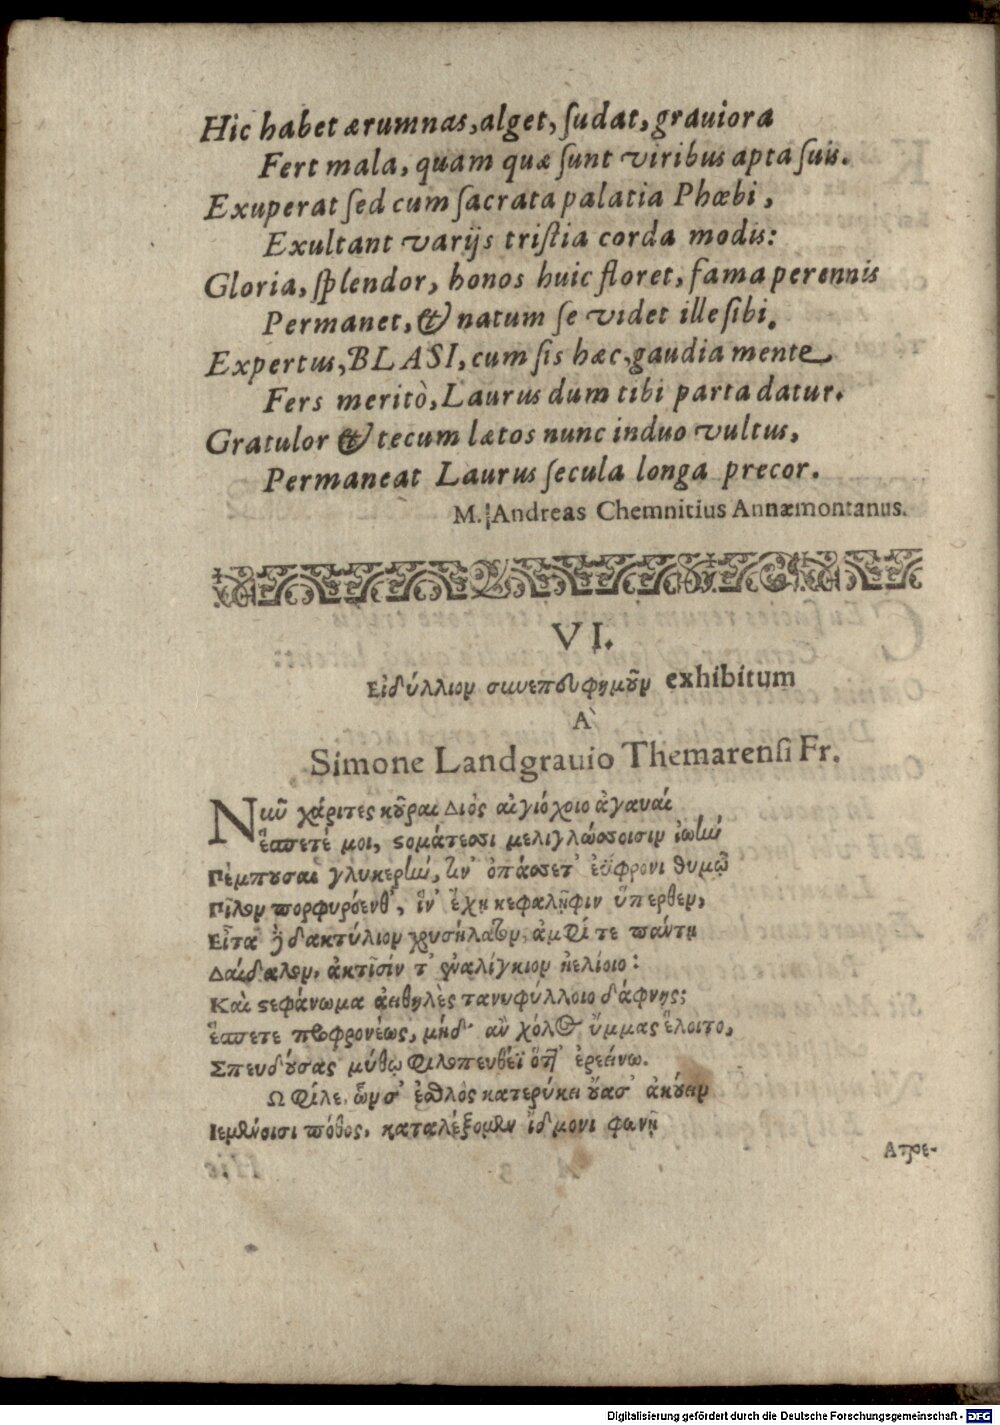 Hic habet ærumnas, alget, ſudat, grauiora
Fert mala, quam quæ ſunt viribus apta ſuis.
Exuperat ſed cum ſacrata palatia Phœbi,
Exultant varijs triſtia corda modis:
Gloria, ſplendor, honos huic floret, fama perennis
Permanet, & natum ſe videt ille ſibi.
Expertus, BLASI, cum ſis hæc, gaudia mente
Fers meritò, Laurus dum tibi parta datur.
Gratulor & tecum lætos nunc induo vultus,
Permaneat Laurus ſecula longa precor.
M. Andreas Chemnitius Annæmontanus.
VI.
Εἰδύλλιον συνεπευφημοῦν exhibitum
A`
Simone Landgrauio Themarenſi Fr.
Νῦν χάριτες κοῦραι Διὸς αἰγιόχοιο ἀγαυαὶ
ἔσπετέ μοι, στομάτεσσι μελιγλώσσοισιν ἰωὴν
Πέμπουσαι γλυκερὴν, ὅν' ὀπάσσετ' ἐΰφρονι θυμῷ
Πῖλον πορφυρόενθ', ἵν' ἔχῃ κεφαλῆφιν ὕπερθεν,
Εἶτα ἢ δακτύλιον χρυσήλατον, ἀμφί τε πάντη
Δαίδαλον, ἀκτῖσίν τ' ἐναλίγκιον ἠελίοιο:
Καὶ στεφάνωμα ἀειθηλὲς τανυφύλλοιο δάφνης;
ἔσπετε προφρονέως, μήδ' ἂν χόλος ὔμμας ἕλοιτο,
Σπευδούσας μύθῳ φιλοπευθέϊ ὅττ' ἐρεείνω.
Ω φίλε, ὧν σ' ἐσθλὸς κατερύκει οὔασ' ἀκούειν
Ιεμένοισι πόθος, καταλέξομεν ἴδμονι φωνῇ
Ατρε-
Digitalisierung gefördert durch die Deutsche Forschungsgemeinschaft - DFG